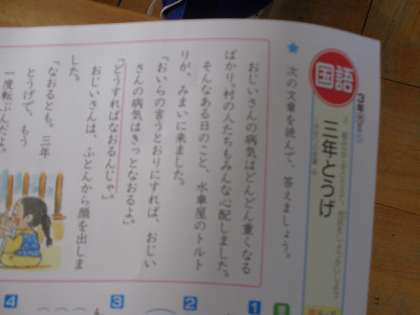 国語
3年
三年とうげ
★ 次の文章を読んで、答えましょう。
おじいさんの病気はどんどん重くなる
ばかり。村の人たちもみんな心配しました。
そんなある日のこと、水車屋のトルト
リが、みまいに来ました。
「おいらの言うとおりにすれば、おじい
さんの病気はきっとなおるよ。」
「どうすればなおるんじゃ。」
おじいさんは、ふとんから顔を出しま
した。
「なおるとも。三年
とうげで、もう
一度転ぶんだよ。
1
2
3
4